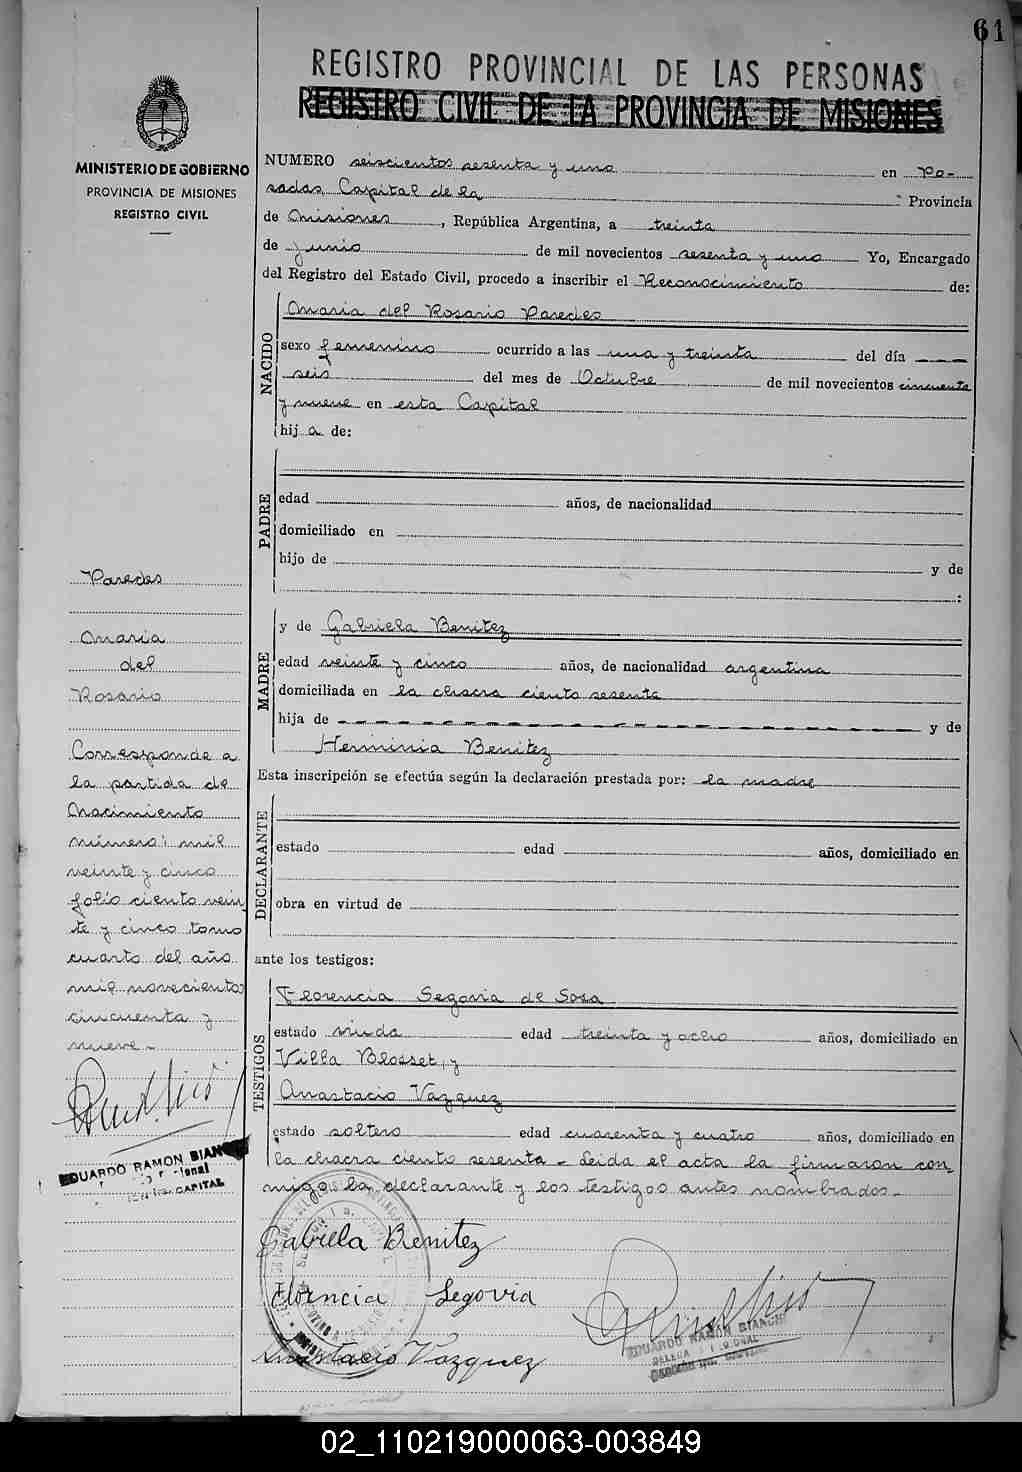 61
REGISTRO PROVINCIAL DE LAS PERSONAS
REGISTRO CIVIL DE LA PROVINCIA DE MISIONES
MINISTERIO DE GOBIERNO
PROVINCIA DE MISIONES
REGISTRO CIVIL
NUMERO seiscientos sesenta y uno en Po-
sadas, Capital de la Provincia
de Misiones, República Argentina, a treinta
de junio de mil novecientos sesenta y uno Yo, Encargado
del Registro del Estado Civil, procedo a inscribir el Reconocimiento de:
NACIDO
Maria del Rosario Paredes
sexo femenino ocurrido a las una y treinta del día
seis del mes de Octubre de mil novecientos cincuenta
y nueve en esta Capital
hija de:
PADRE
edad años, de nacionalidad
domiciliado en
hijo de y de
:
MADRE
y de Gabriela Benitez
edad veinte y cinco años, de nacionalidad argentina
domiciliada en la chacra ciento sesenta
hija de y de
Herminia Benitez
Esta inscripción se efectúa según la declaración prestada por: la madre
DECLARANTE
estado edad años, domiciliado en
obra en virtud de
ante los testigos:
TESTIGOS
Florencia Segovia de Sosa
estado viuda edad treinta y ocho años, domiciliado en
Villa Blosset, y
Anastacio Vazquez
estado soltero edad cuarenta y cuatro años, domiciliado en
la chacra ciento sesenta - Leida el acta la firmaron con-
migo la declarante y los testigos antes nombrados.-
Gabriela Benitez
Florencia Segovia
Anastacio Vazquez
EDUARDO RAMON BIANCHI
Paredes
Maria
del
Rosario
Corresponde a
la partida de
Nacimiento
número: mil
veinte y cinco
folio ciento vein
te y cinco tomo
cuarto del año
mil novecientos
cincuenta y
nueve.-
EDUARDO RAMON BIANCHI
CAPITAL
02_110219000063-003849